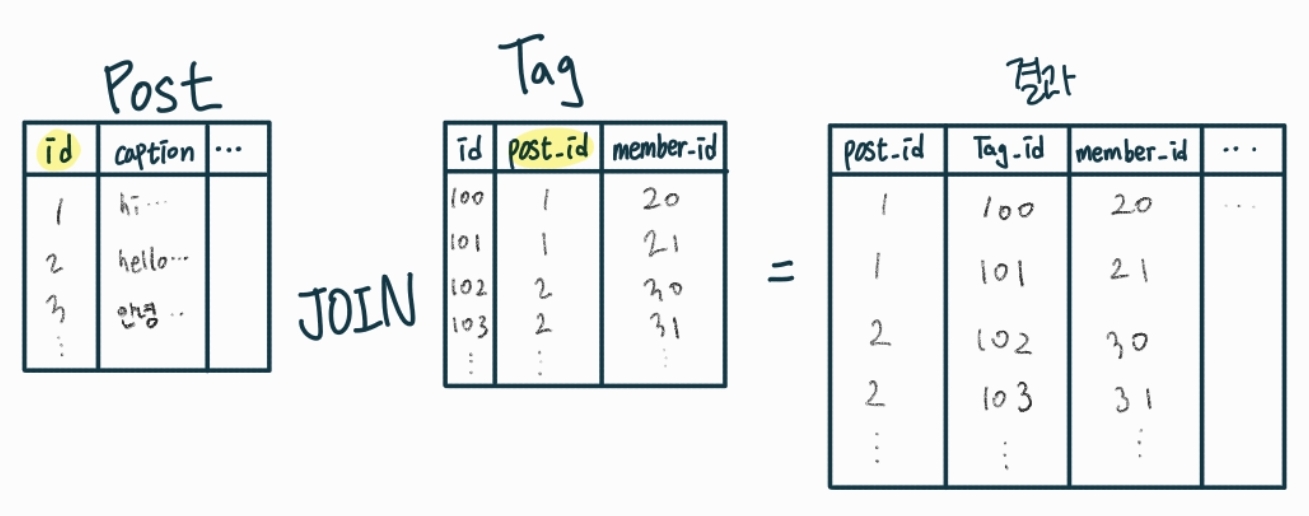 Post
id caption ...
1 hi...
2 hello...
3 안녕 ..
⋮
JOIN
Tag
id post_id member_id
100 1 20
101 1 21
102 2 30
103 2 31
⋮ ⋮ ⋮
=
결과
post_id Tag_id member_id ...
1 100 20 ...
1 101 21
2 102 30
2 103 31
⋮ ⋮ ⋮